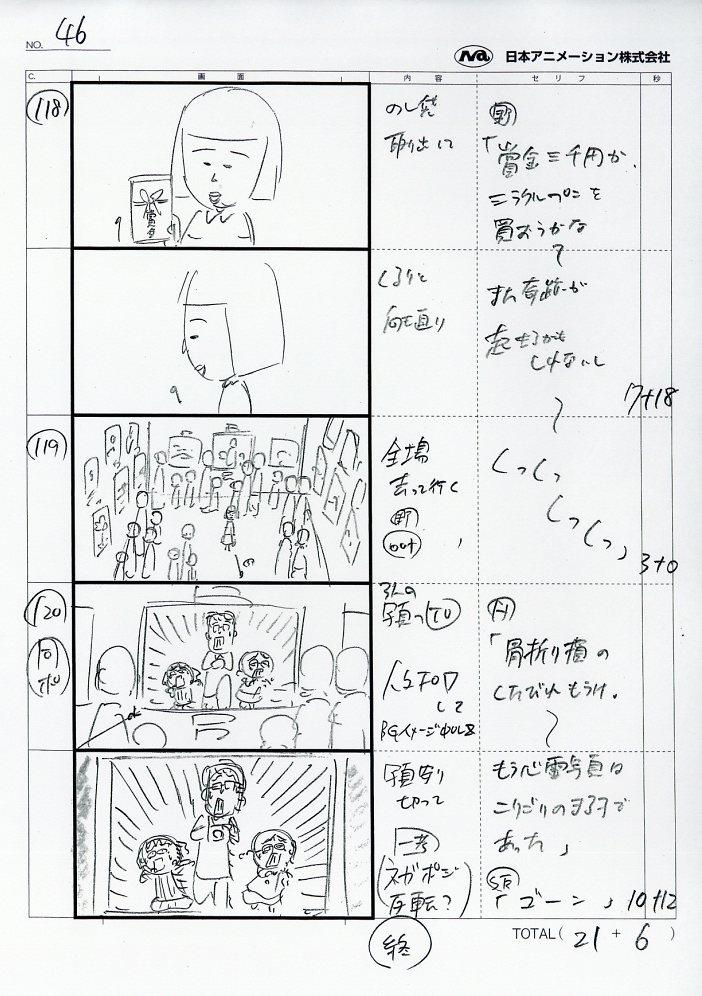 NO. 46
日本アニメーション株式会社
C. 画面 内容 セリフ 秒
118
のし袋
取り出して
賞金
野
「賞金三千円か、
ミラクルペンを
買おうかな
くるりと
向き直り
また奇跡が
起きるかも
しれないし
7+18
119
会場
去って行く
野
out
くっくっ
くっくっ」
3+0
120
同ポ
3人の
人々FO
して
BGイメージ
H
「骨折り損の
くたびれもうけ。
もう心霊写真は
こりごりのまる子で
あった」
切って
一考
ネガポジ
反転?
SE
「ゴーン」
10+12
終
TOTAL( 21 + 6 )